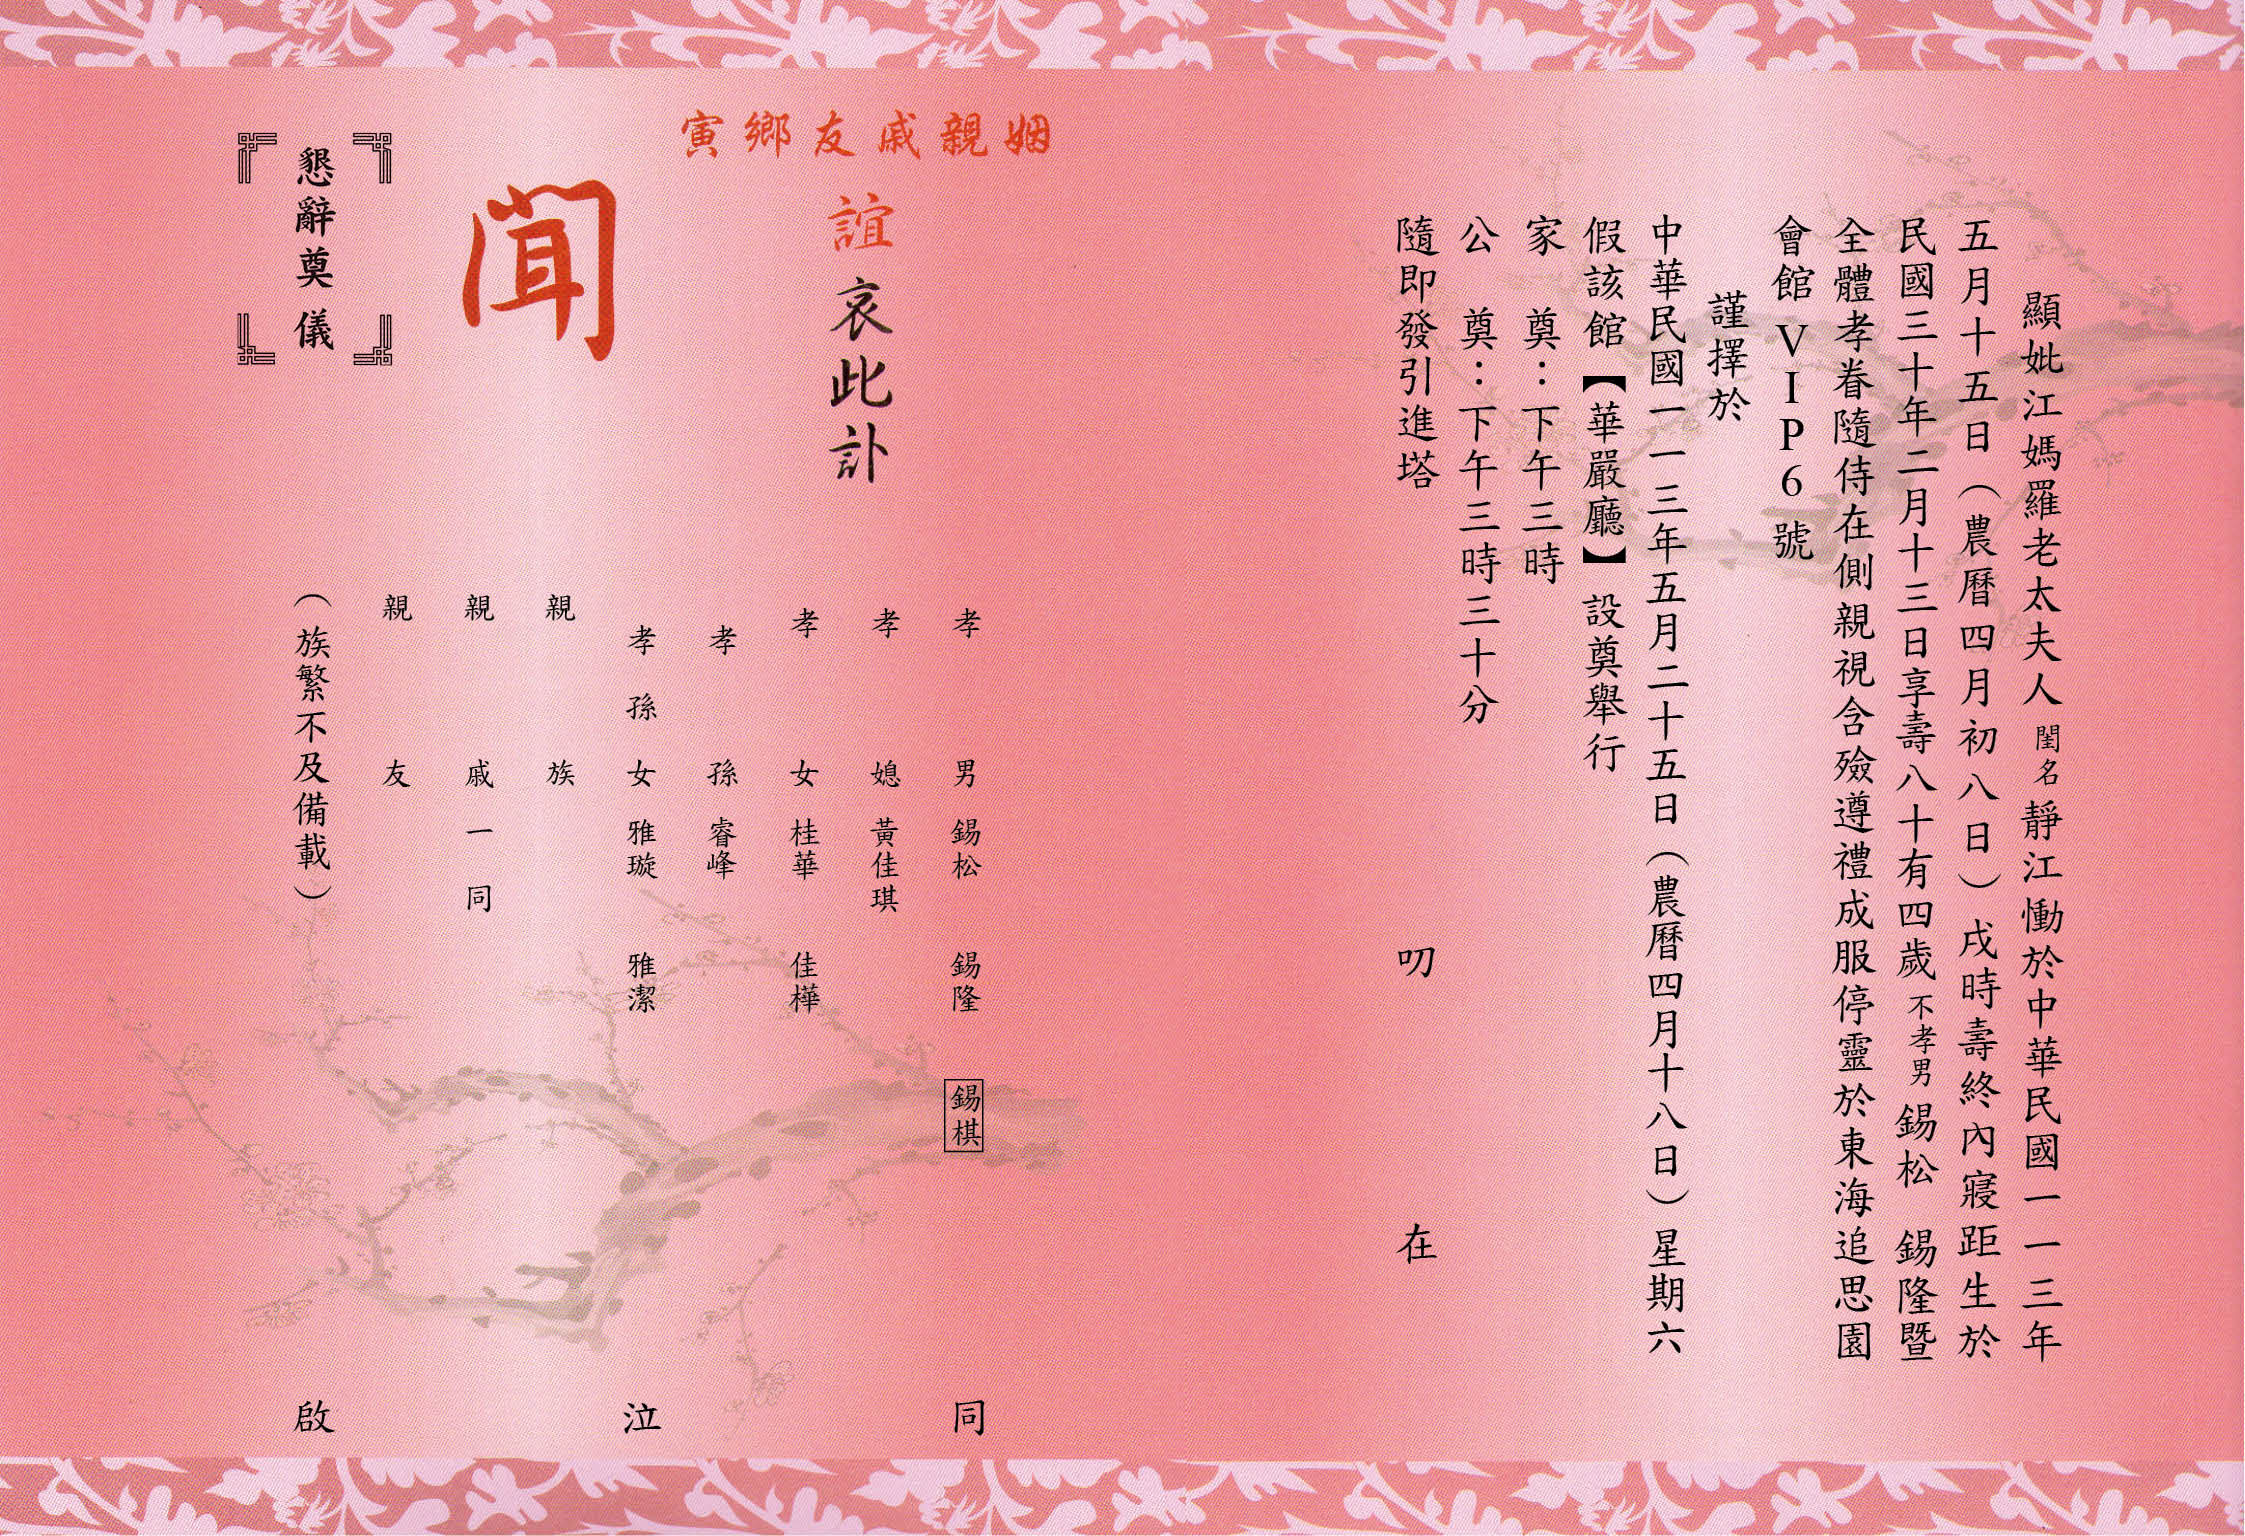 顯妣江媽羅老太夫人 閨名 靜江慟於中華民國一一三年
五月十五日（農曆四月初八日）戌時壽終內寢距生於
民國三十年二月十三日享壽八十有四歲 不孝男 錫松 錫隆暨
全體孝眷隨侍在側親視含殮遵禮成服停靈於東海追思園
會館 VIP6號
謹擇於
中華民國一一三年五月二十五日（農曆四月十八日）星期六
假該館【華嚴廳】設奠舉行
家 奠：下午三時
公 奠：下午三時三十分
隨即發引進塔 叨 在
姻親戚友鄉寅
誼哀此訃
聞
孝 男 錫松 錫隆 錫棋 同
孝 媳 黃佳琪
孝 女 桂華 佳樺
孝 孫 睿峰
孝孫女 雅璇 雅潔 泣
親 族
親 戚 一同
親 友
（族繁不及備載） 啟
懇辭奠儀